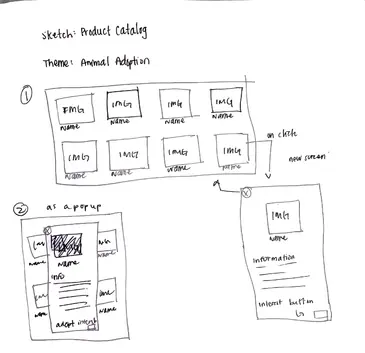 Sketch: Product Catalog
Theme: Animal Adoption
1
IMG IMG IMG IMG
Name Name Name Name
IMG IMG IMG IMG
Name Name Name Name
on click
new screen
or
X
IMG
Name
Information
interest button
2 as a popup
X
Name
Name
Info
Name
Name
adopt interest